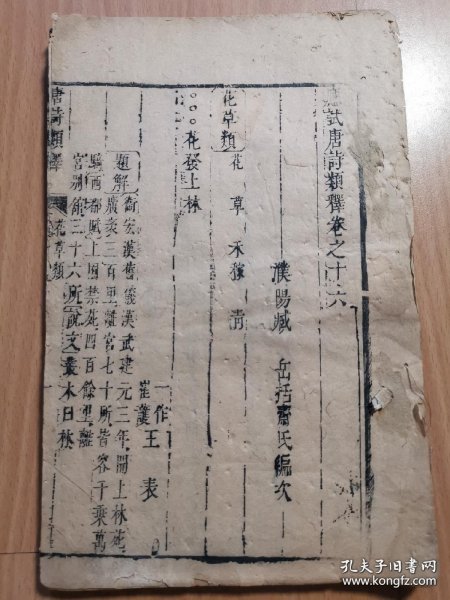 試唐詩類釋卷之十六
濮陽臧 岳括齋氏編次
花草類 花 草 禾 穫 青
○○○花發上林
一作崔叢 王 表
題解 衛宏漢舊儀漢武建元三年開上林苑
廣袤三百里離宮七十所皆容千乘萬
騎 西都賦上囿禁苑四百餘里離
宮別館三十六所 說文叢木曰林
唐詩類釋 花草類
孔夫子旧书网
www.kongfz.com